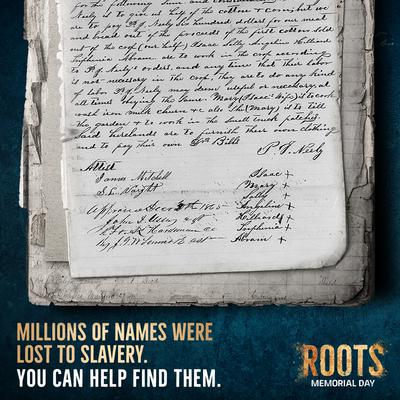 Neely is to give us half of the cotton & corn, but we
are to pay P. F. Neely six hundred dollars for our meat
and bread out of the proceeds of the first cotton sold
out of the crop (our half) Isaac Sally Angeline Hilliard
Sophronia Abram are to work in the crop according
to P. F. Neely's orders, and any time that their labor
is not necessary in the crop, they are to do any kind
of labor P. F. Neely may deem useful or necessary, at
all times obeying the same. Mary (Isaac' Wife) is to cook
wash iron milk churn &c also She (Mary) is to till
the garden & to work in the small truck patches.
Said freedmen are to furnish their own clothing
and to pay their own Bills
P. F. Neely
Attest
James Mitchell
S. C. Wright
Isaac +
Mary +
Sally +
Angeline +
Hilliard +
Sophronia +
Abram +
Approved Dec 1865
John
Hardeman Co
by
MILLIONS OF NAMES WERE
LOST TO SLAVERY.
YOU CAN HELP FIND THEM.
ROOTS
MEMORIAL DAY